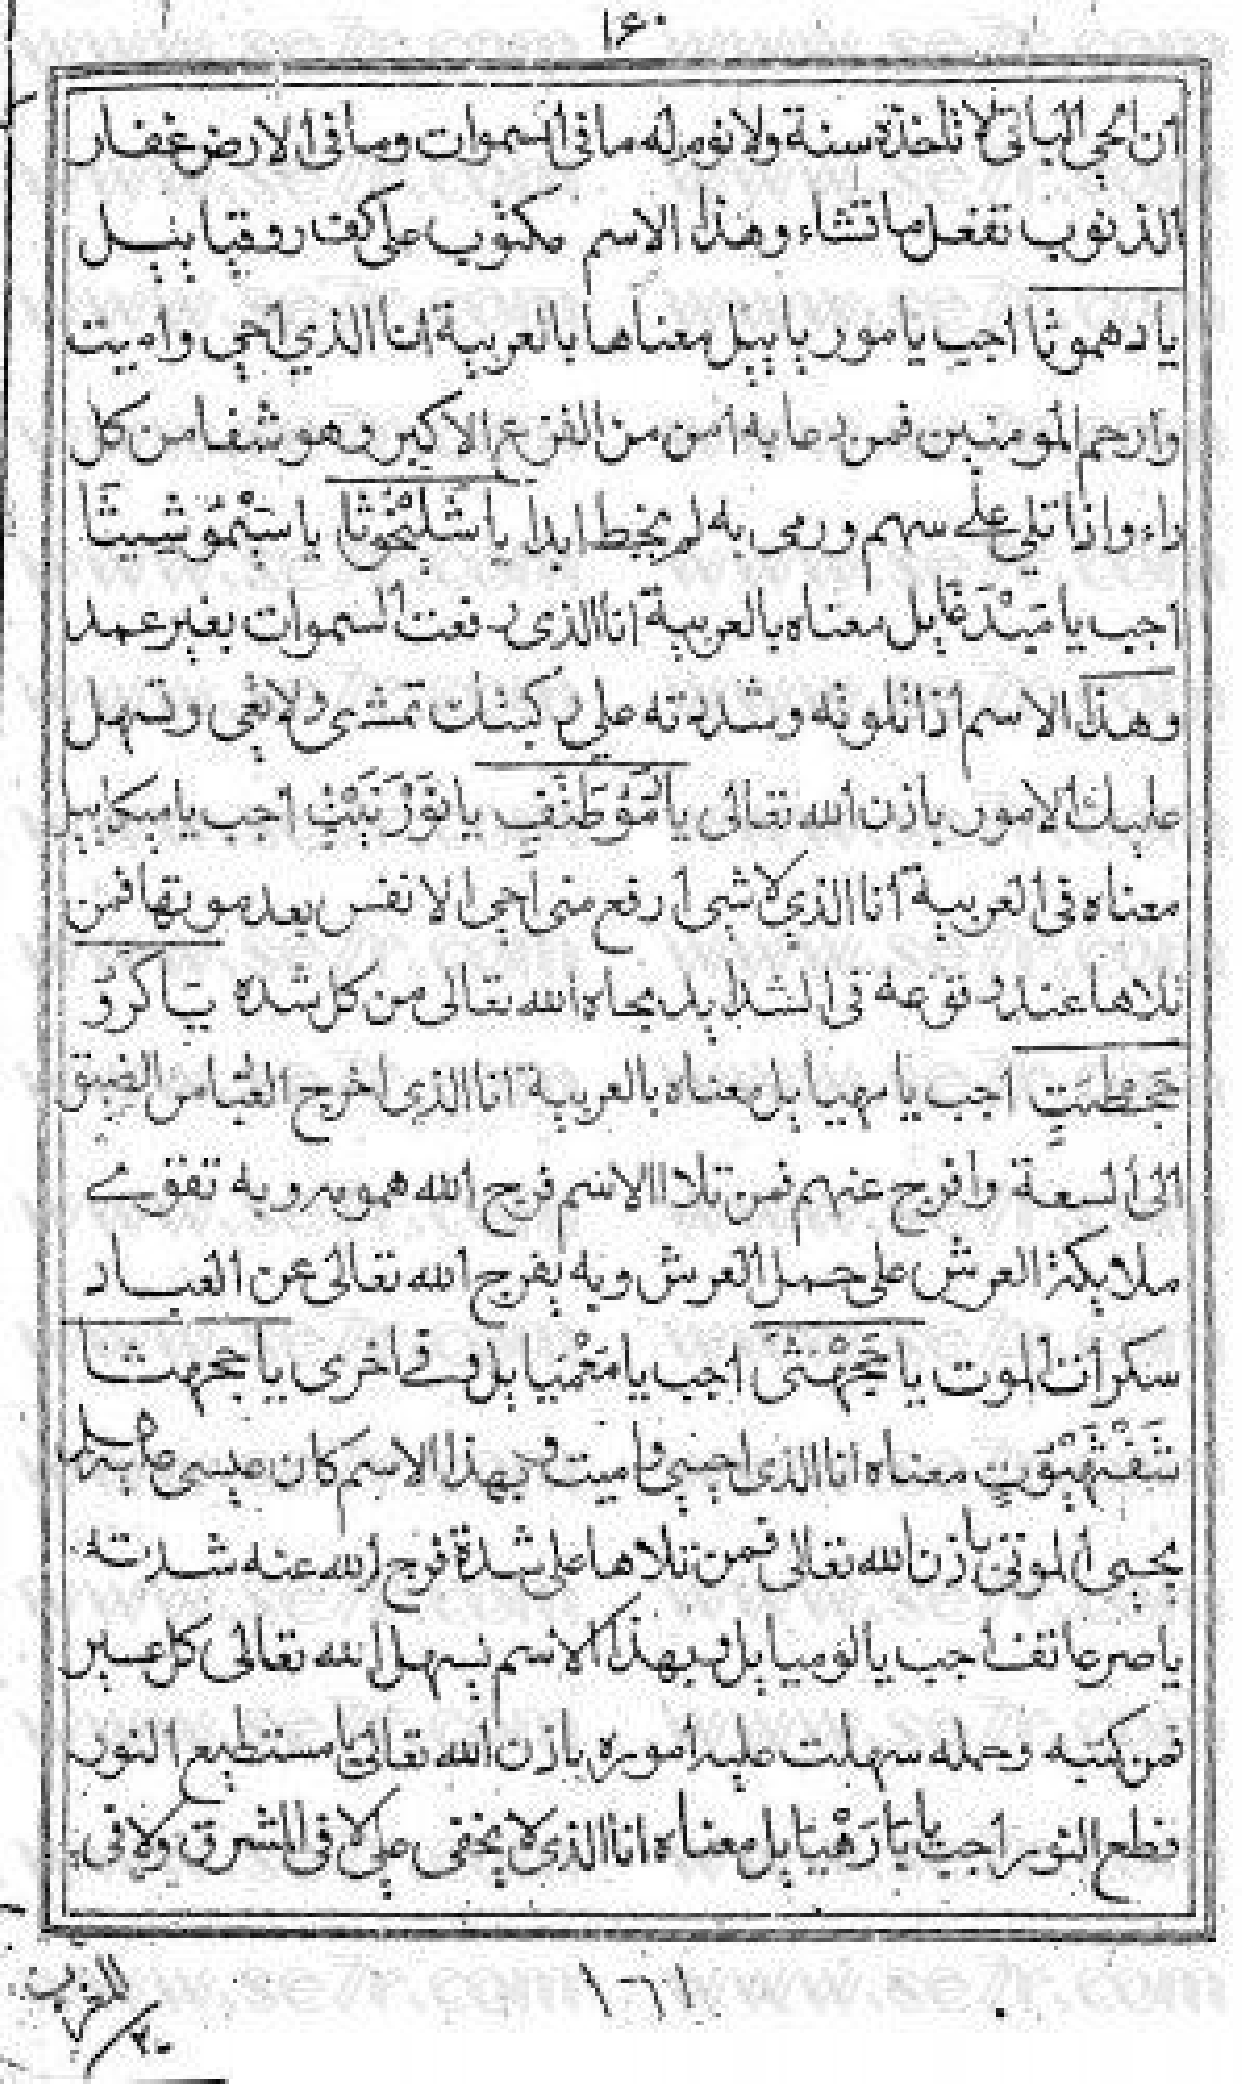 ١٦٠
انا الحي الباقي لا تاخذه سنة ولا نوم له ما في السموات وما في الارض غفار
الذنوب تفعل ما تشاء وهذا الاسم مكتوب على كف روقيا ييل
يا دهموثا اجب يا مور يا ييل معناها بالعربية انا الذي احي واميت
وارحم المومنين فمن دعا به امن من الفزع الاكبر وهو شفا من كل
داء واذا تلي على سهم ورمى به لم يخيط ابدا يا شليخوثا يا
اجب يا معناه بالعربية انا الذي رفعت السموات بغير عمد
وهذا الاسم اذا تلوته وشددته على ركبتك تمشي ولا تعي وتسهل
عليك الامور باذن الله تعالى يا اجب يا ميكاييل
معناه في العربية انا الذي لا شي ارفع مني احي الانفس بعد موتها فمن
تلاها عند وقوعه في الشدايد نجاه الله تعالى من كل شده يا كرو
اجب يا مهيا يل معناه بالعربية انا الذي اخرج من الضيق
الى السعة وافرج عنهم فمن تلا الاسم فرج الله همومه وبه تقوى
ملايكة العرش على حمل العرش وبه يفرج الله تعالى عن العباد
سكرات الموت يا اجب يا وفي اخرى يا
معناه انا الذي احيي واميت وبهذا الاسم كان عيسى
يحيي الموتى باذن الله تعالى فمن تلاها على شدة فرج الله عنه شدته
يا اجب يا لوميا يل وبهذا الاسم يسهل الله تعالى كل عسير
فمن كتبه وحمله سهلت عليه اموره باذن الله تعالى يا مستطيع النور
قطع النور اجب يا معناه انا الذي لا يخفى علي لا في المشرق ولا في
المغرب
١٦١
www.se7r.com